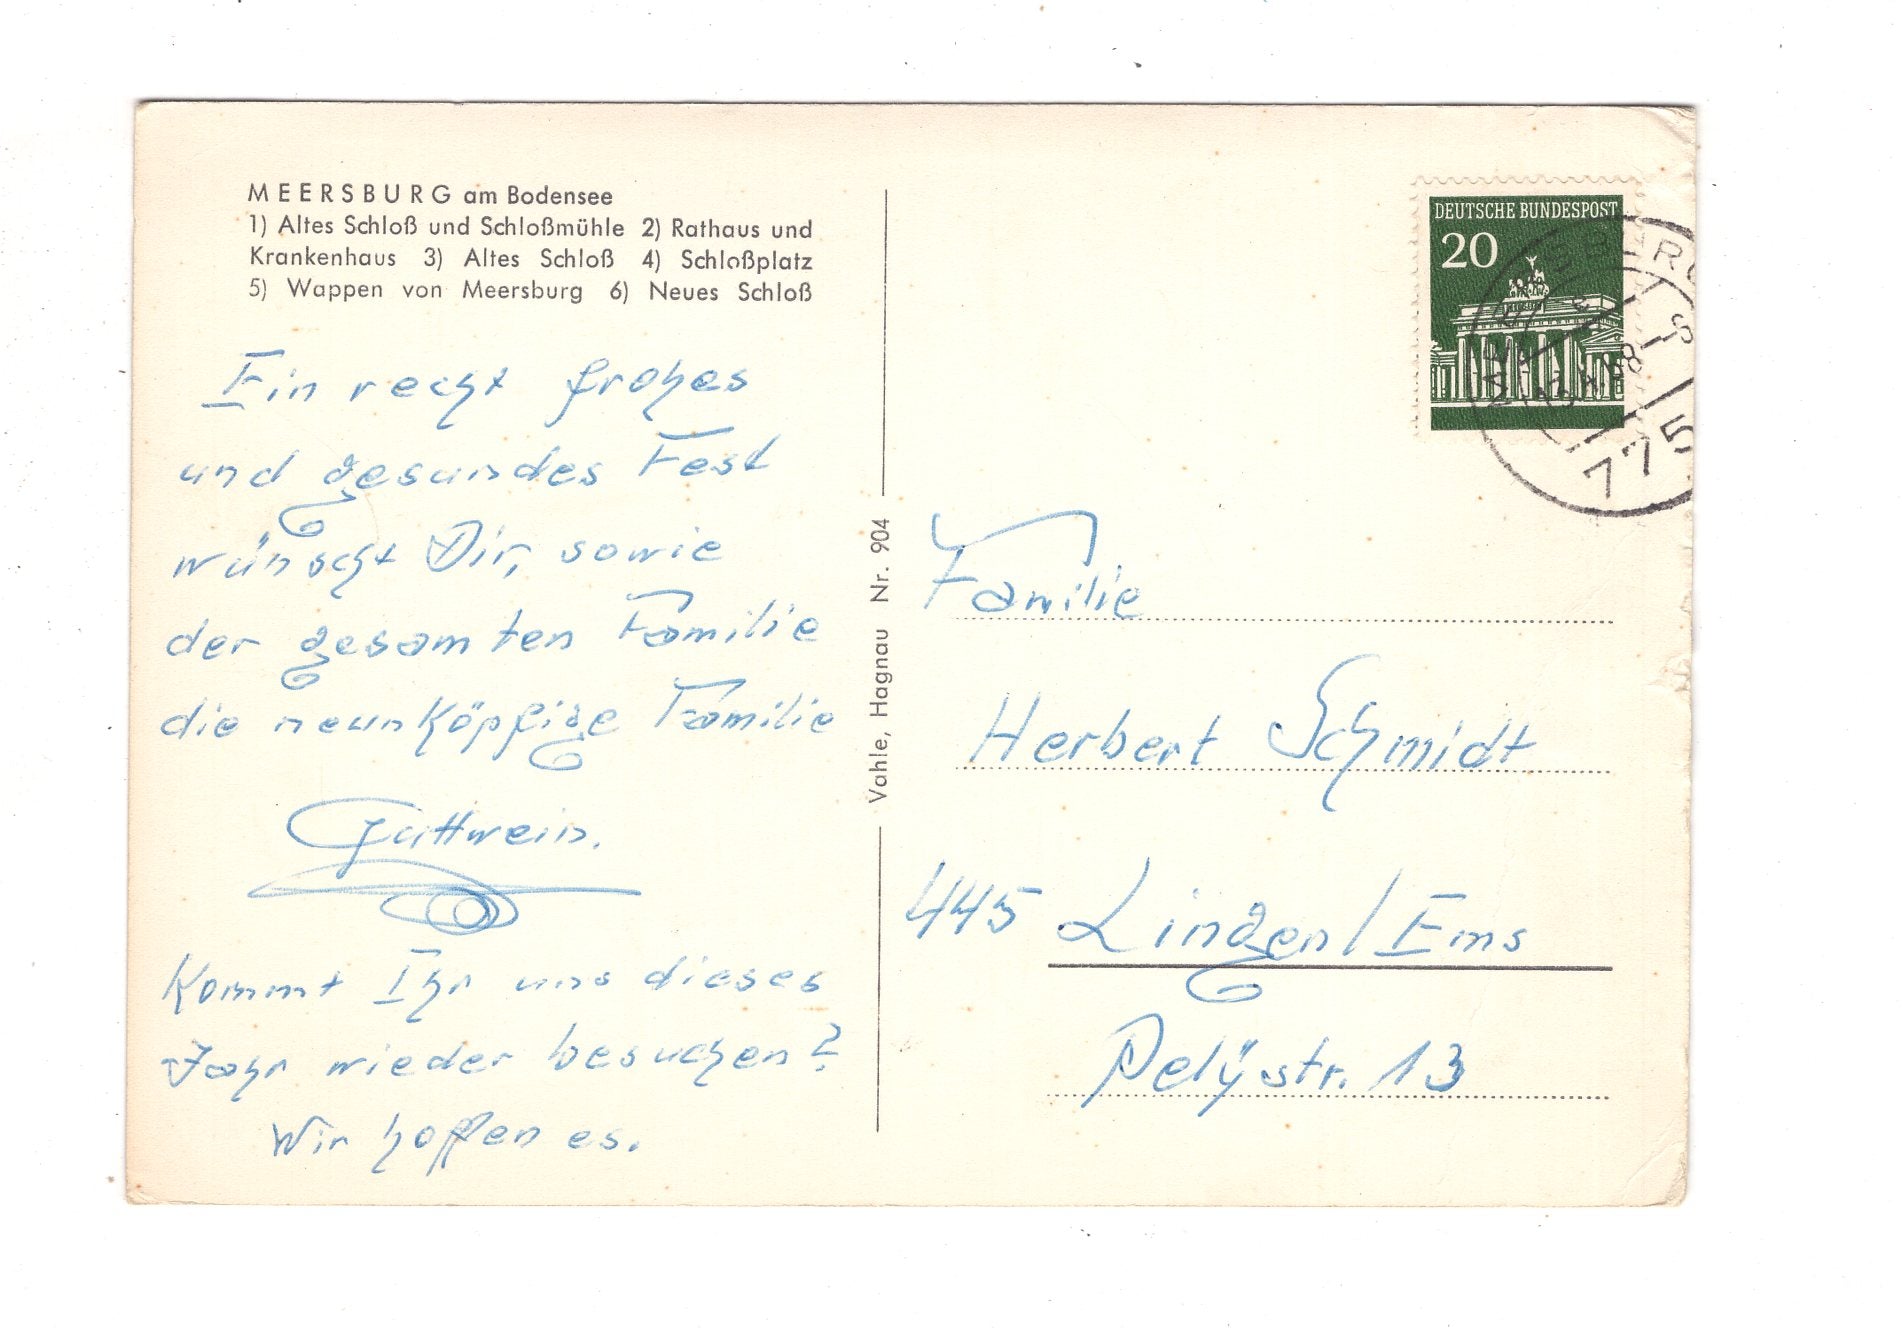 MEERSBURG am Bodensee
1) Altes Schloß und Schloßmühle 2) Rathaus und
Krankenhaus 3) Altes Schloß 4) Schloßplatz
5) Wappen von Meersburg 6) Neues Schloß
Ein recht frohes
und gesundes Fest
wünscht Dir, sowie
der gesamten Familie
die neunköpfige Familie
Gattwein.
Kommt Ihr uns dieses
Jahr wieder besuchen?
Wir hoffen es.
Vahle, Hagnau Nr. 904
DEUTSCHE BUNDESPOST
20
MEERSBURG
775
Familie
Herbert Schmidt
445 Lingen/Ems
Delÿstr. 13